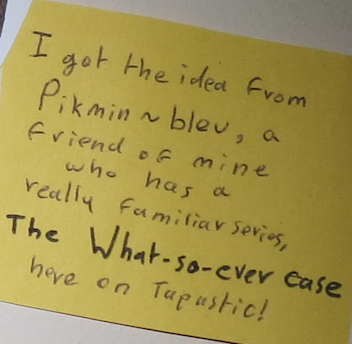 I got the idea from
Pikmin~bleu, a
friend of mine
who has a
really familiar series,
The What-so-ever case
here on Tapastic!